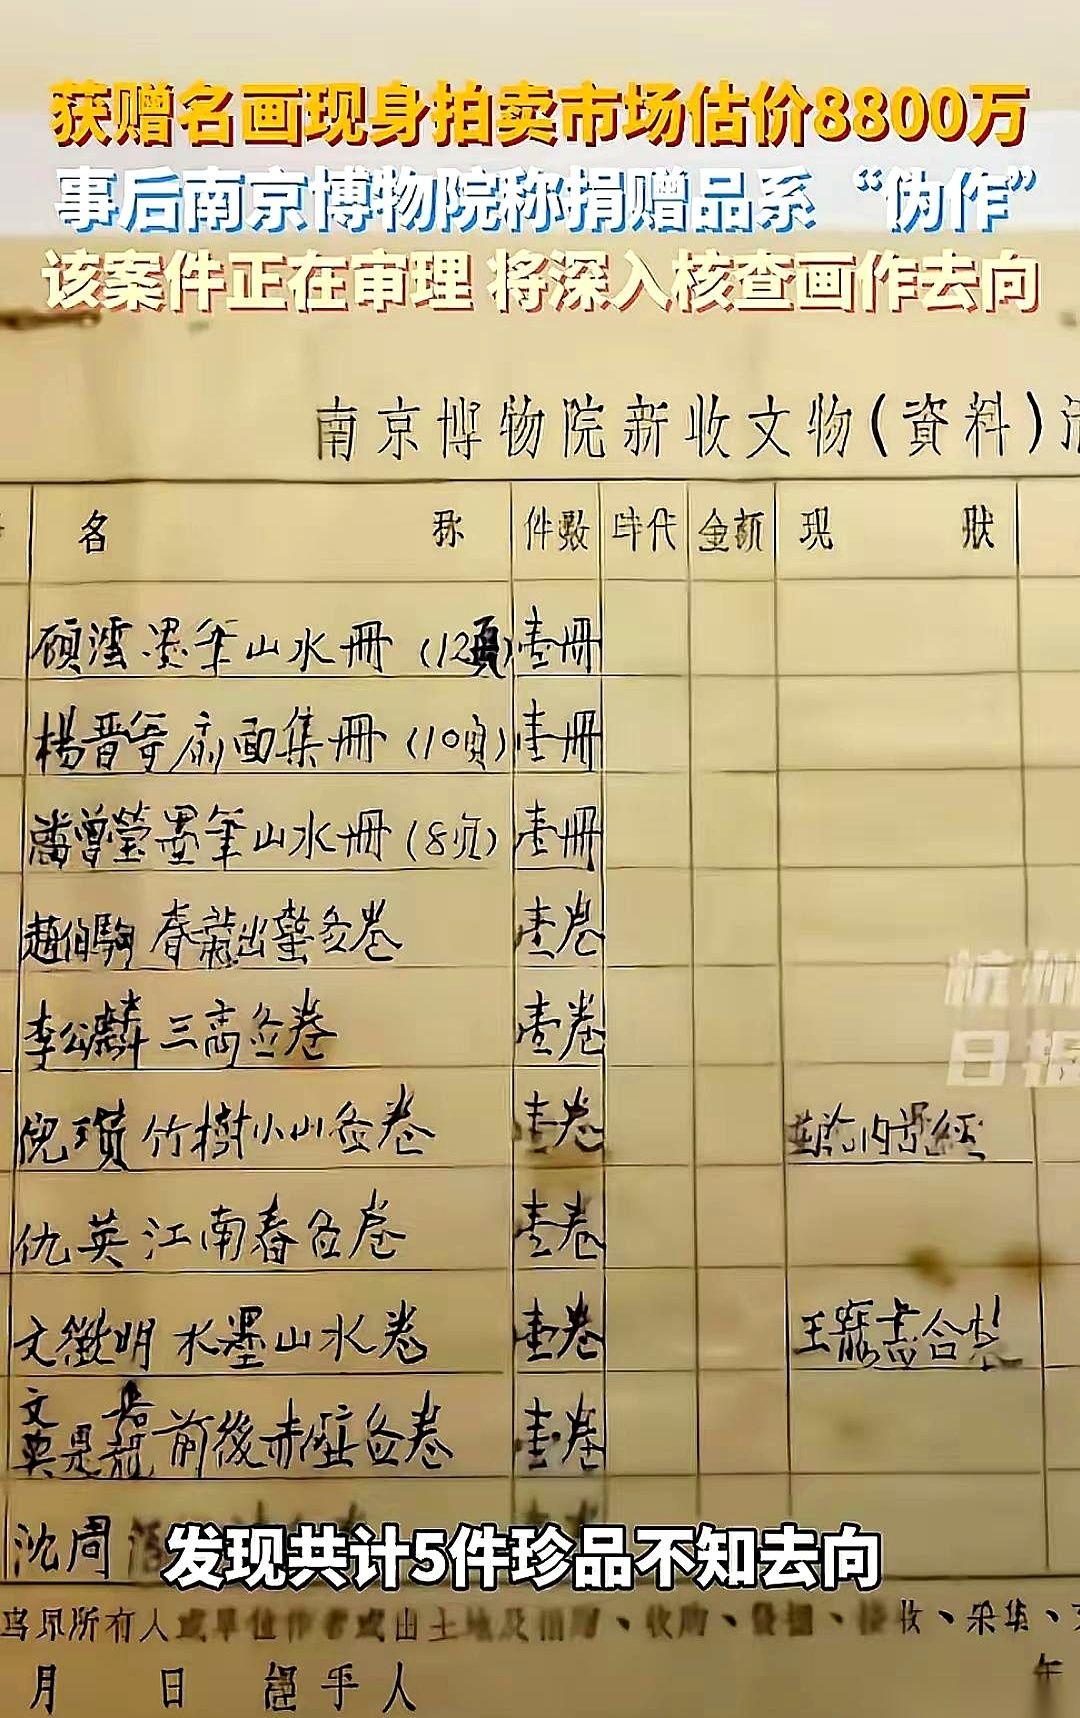 获赠名画现身拍卖市场估价8800万
事后南京博物院称捐赠品系“伪作”
该案件正在审理 将深入核查画作去向
南京博物院新收文物(資料)
名称 件数 时代 金额 现状
顾澐墨笔山水册(12頁) 壹冊
楊晋等扇面集冊(10頁) 壹冊
潘曾瑩墨笔山水冊(8页) 壹冊
趙伯駒 春 出 卷 壹卷
李公麟 三高 卷 壹卷
倪瓚 竹樹小山 卷 壹卷
仇英 江南春 卷 壹卷
文徵明 水墨山水卷 壹卷 王 合卷
文 前後赤壁 卷 壹卷
沈周
杭州
日报
发现共计5件珍品不知去向
所有人或單位 或出土地及 、收购、發掘、 收、采集、
年
月 日 手人